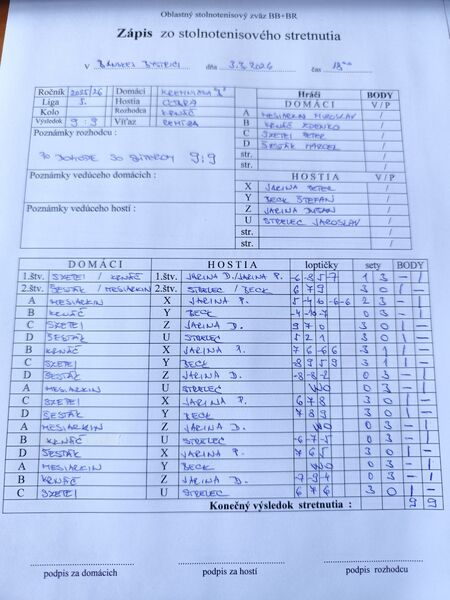 Oblastný stolnotenisový zväz BB+BR
Zápis zo stolnotenisového stretnutia
V BANSKEJ BYSTRICI dňa 3.3.2026 čas 18⁰⁰
Ročník 2025/26 Domáci KREMNIČKA "B"
Liga 5. Hostia
Kolo Rozhodca KRNÁČ
Výsledok 9:9 Víťaz REMÍZA
Poznámky rozhodcu :
PO DOHODE SO 9:9
Poznámky vedúceho domácich :
Poznámky vedúceho hostí :
Hráči BODY
DOMÁCI V/P
A MESIARKIN MIROSLAV /
B KRNÁČ ZDENKO /
C SZETEI PETER /
D ŠESTÁK MARCEL /
str. /
str. /
HOSTIA V/P
X JARINA PETER /
Y BECK ŠTEFAN /
Z JARINA DUŠAN /
U STRELEC JAROSLAV /
str. /
str. /
DOMÁCI HOSTIA loptičky sety BODY
1.štv. SZETEI / KRNÁČ 1.štv. JARINA D./JARINA P. -6 -8 5 -7 1 3 – 1
2.štv. ŠESTÁK / MESIARKIN 2.štv. STRELEC / BECK 6 7 9 3 0 1 –
A MESIARKIN X JARINA P. 5 -4 10 -6 -6 2 3 – 1
B KRNÁČ Y BECK -4 -10 -7 0 3 – 1
C SZETEI Z JARINA D. 9 7 0 3 0 1 –
D ŠESTÁK U STRELEC 5 2 1 3 0 1 –
B KRNÁČ X JARINA P. 7 6 -6 6 3 1 1 –
C SZETEI Y BECK -8 9 5 9 3 1 1 –
D ŠESTÁK Z JARINA D. -8 -8 -2 0 3 – 1
A MESIARKIN U STRELEC WO 0 3 – 1
C SZETEI X JARINA P. 6 7 8 3 0 1 –
D ŠESTÁK Y BECK 7 8 9 3 0 1 –
A MESIARKIN Z JARINA D. WO 0 3 – 1
B KRNÁČ U STRELEC -6 -7 -5 0 3 – 1
D ŠESTÁK X JARINA P. 7 6 5 3 0 1 –
A MESIARKIN Y BECK WO 0 3 – 1
B KRNÁČ Z JARINA D. -7 -9 -4 0 3 – 1
C SZETEI U STRELEC 6 7 6 3 0 1 –
Konečný výsledok stretnutia : 9 9
podpis za domácich podpis za hostí podpis rozhodcu